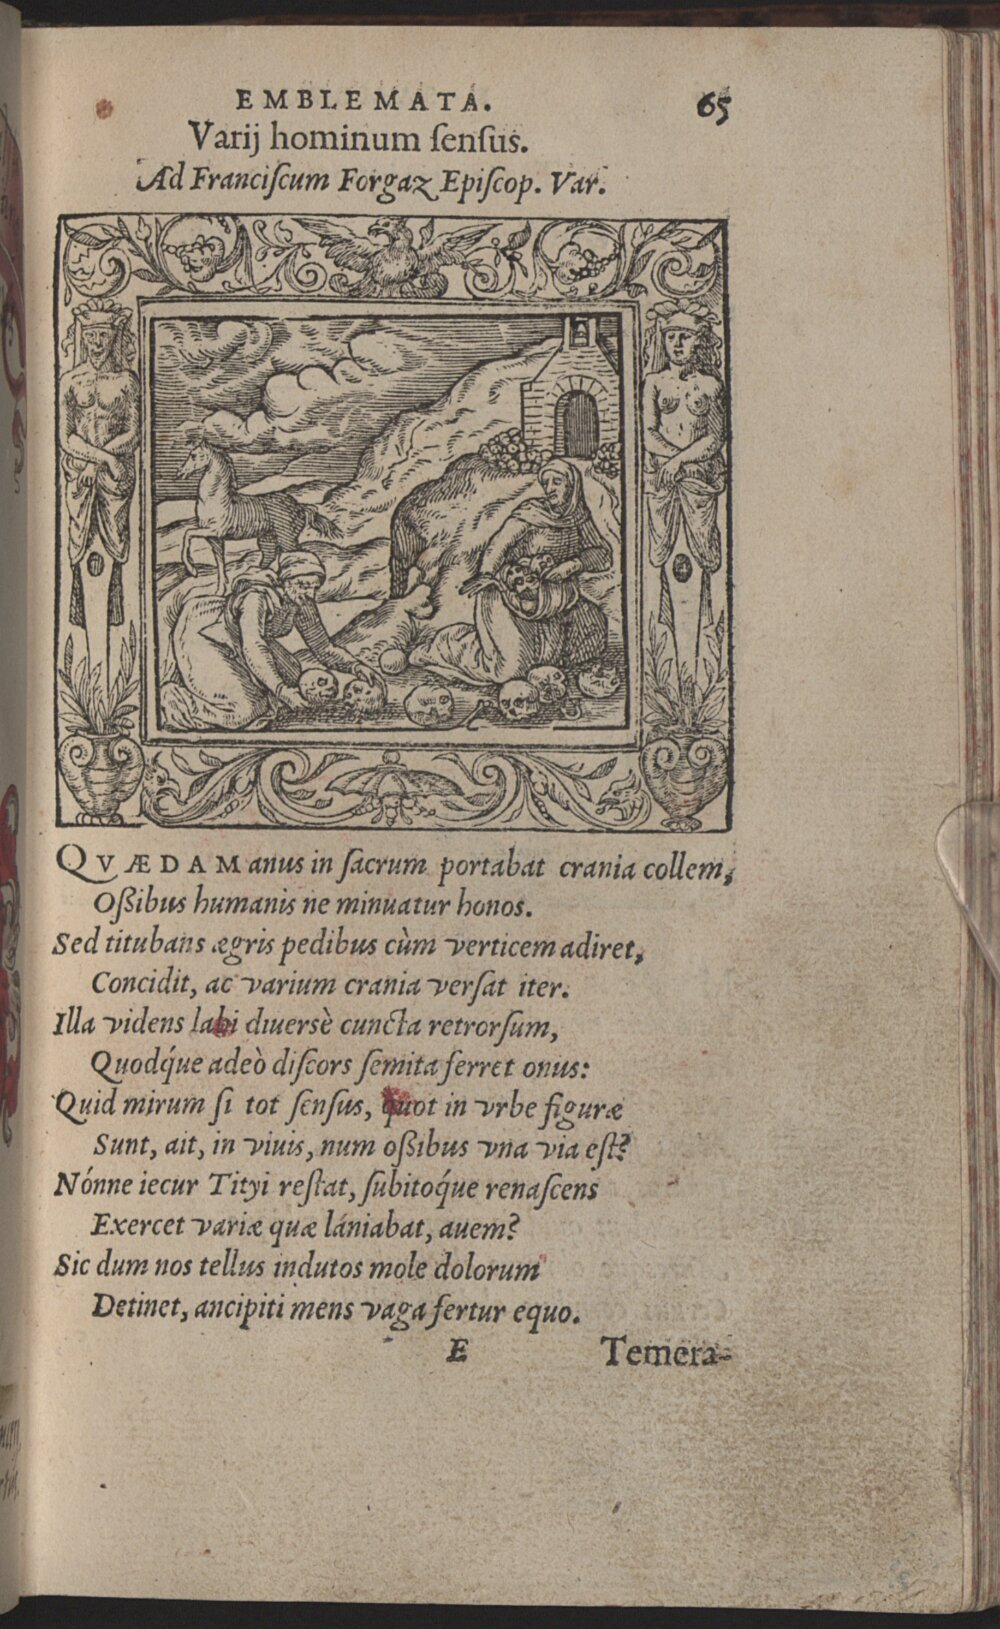 EMBLEMATA. 65
Varij hominum ſenſus.
Ad Franciſcum Forgaz Epiſcop. Var.
QVÆDAM anus in ſacrum portabat crania collem,
Oſſibus humanis ne minuatur honos.
Sed titubans ægris pedibus cùm verticem adiret,
Concidit, ac varium crania verſat iter.
Illa videns labi diuersè cuncta retrorſum,
Quodq́ue adeò diſcors ſemita ferret onus:
Quid mirum ſi tot ſenſus, quot in vrbe figuræ
Sunt, ait, in viuis, num oſſibus vna via eſt?
Nónne iecur Tityi reſtat, ſubitoq́ue renaſcens
Exercet variæ quæ lániabat, auem?
Sic dum nos tellus indutos mole dolorum
Detinet, ancipiti mens vaga fertur equo.
E Temera-